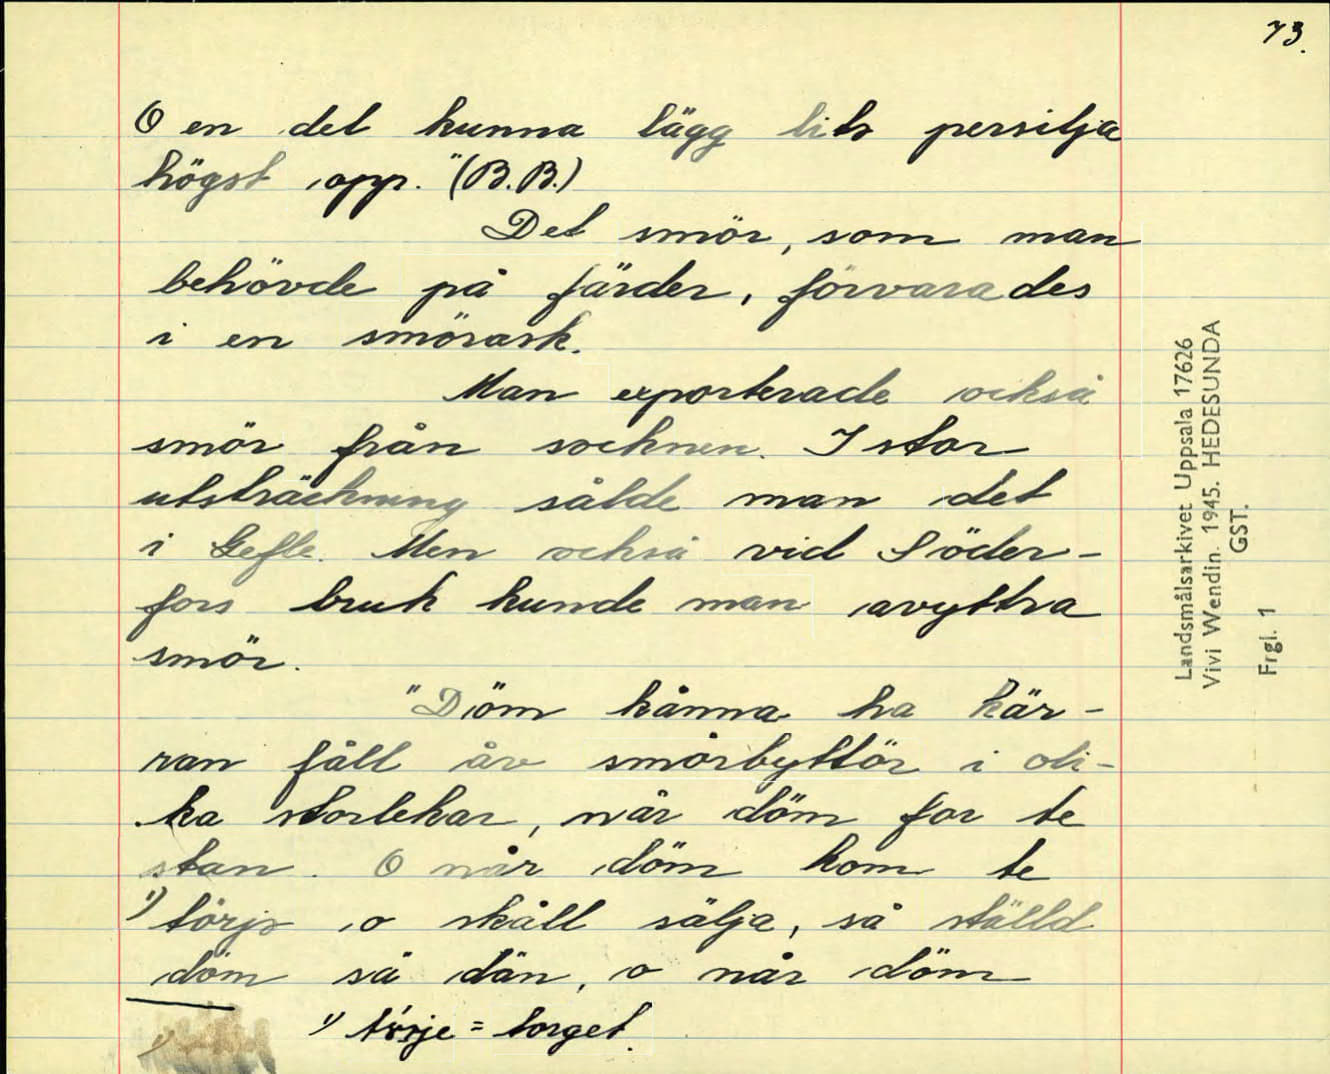 73.
O en del kunna lägg lite persilja
högst opp." (B.B.)
Det smör, som man
behövde på färder, förvarades
i en smörask.
Man exporterade också
smör från socknen. I stor
utsträckning sålde man det
i Gefle. Men också vid Söder-
fors bruk kunde man avyttra
smör.
"Döm kånna ha kär-
ran fåll åv smörbyttör i oli-
ka storlekar, når döm for te
stan. O når döm kom te
1) törje o skåll sälja, så ställd
döm sä dän, o når döm
1) törje = torget.
Landsmålsarkivet Uppsala 17626
Vivi Wendin. 1945. HEDESUNDA
GST.
Frgl. 1